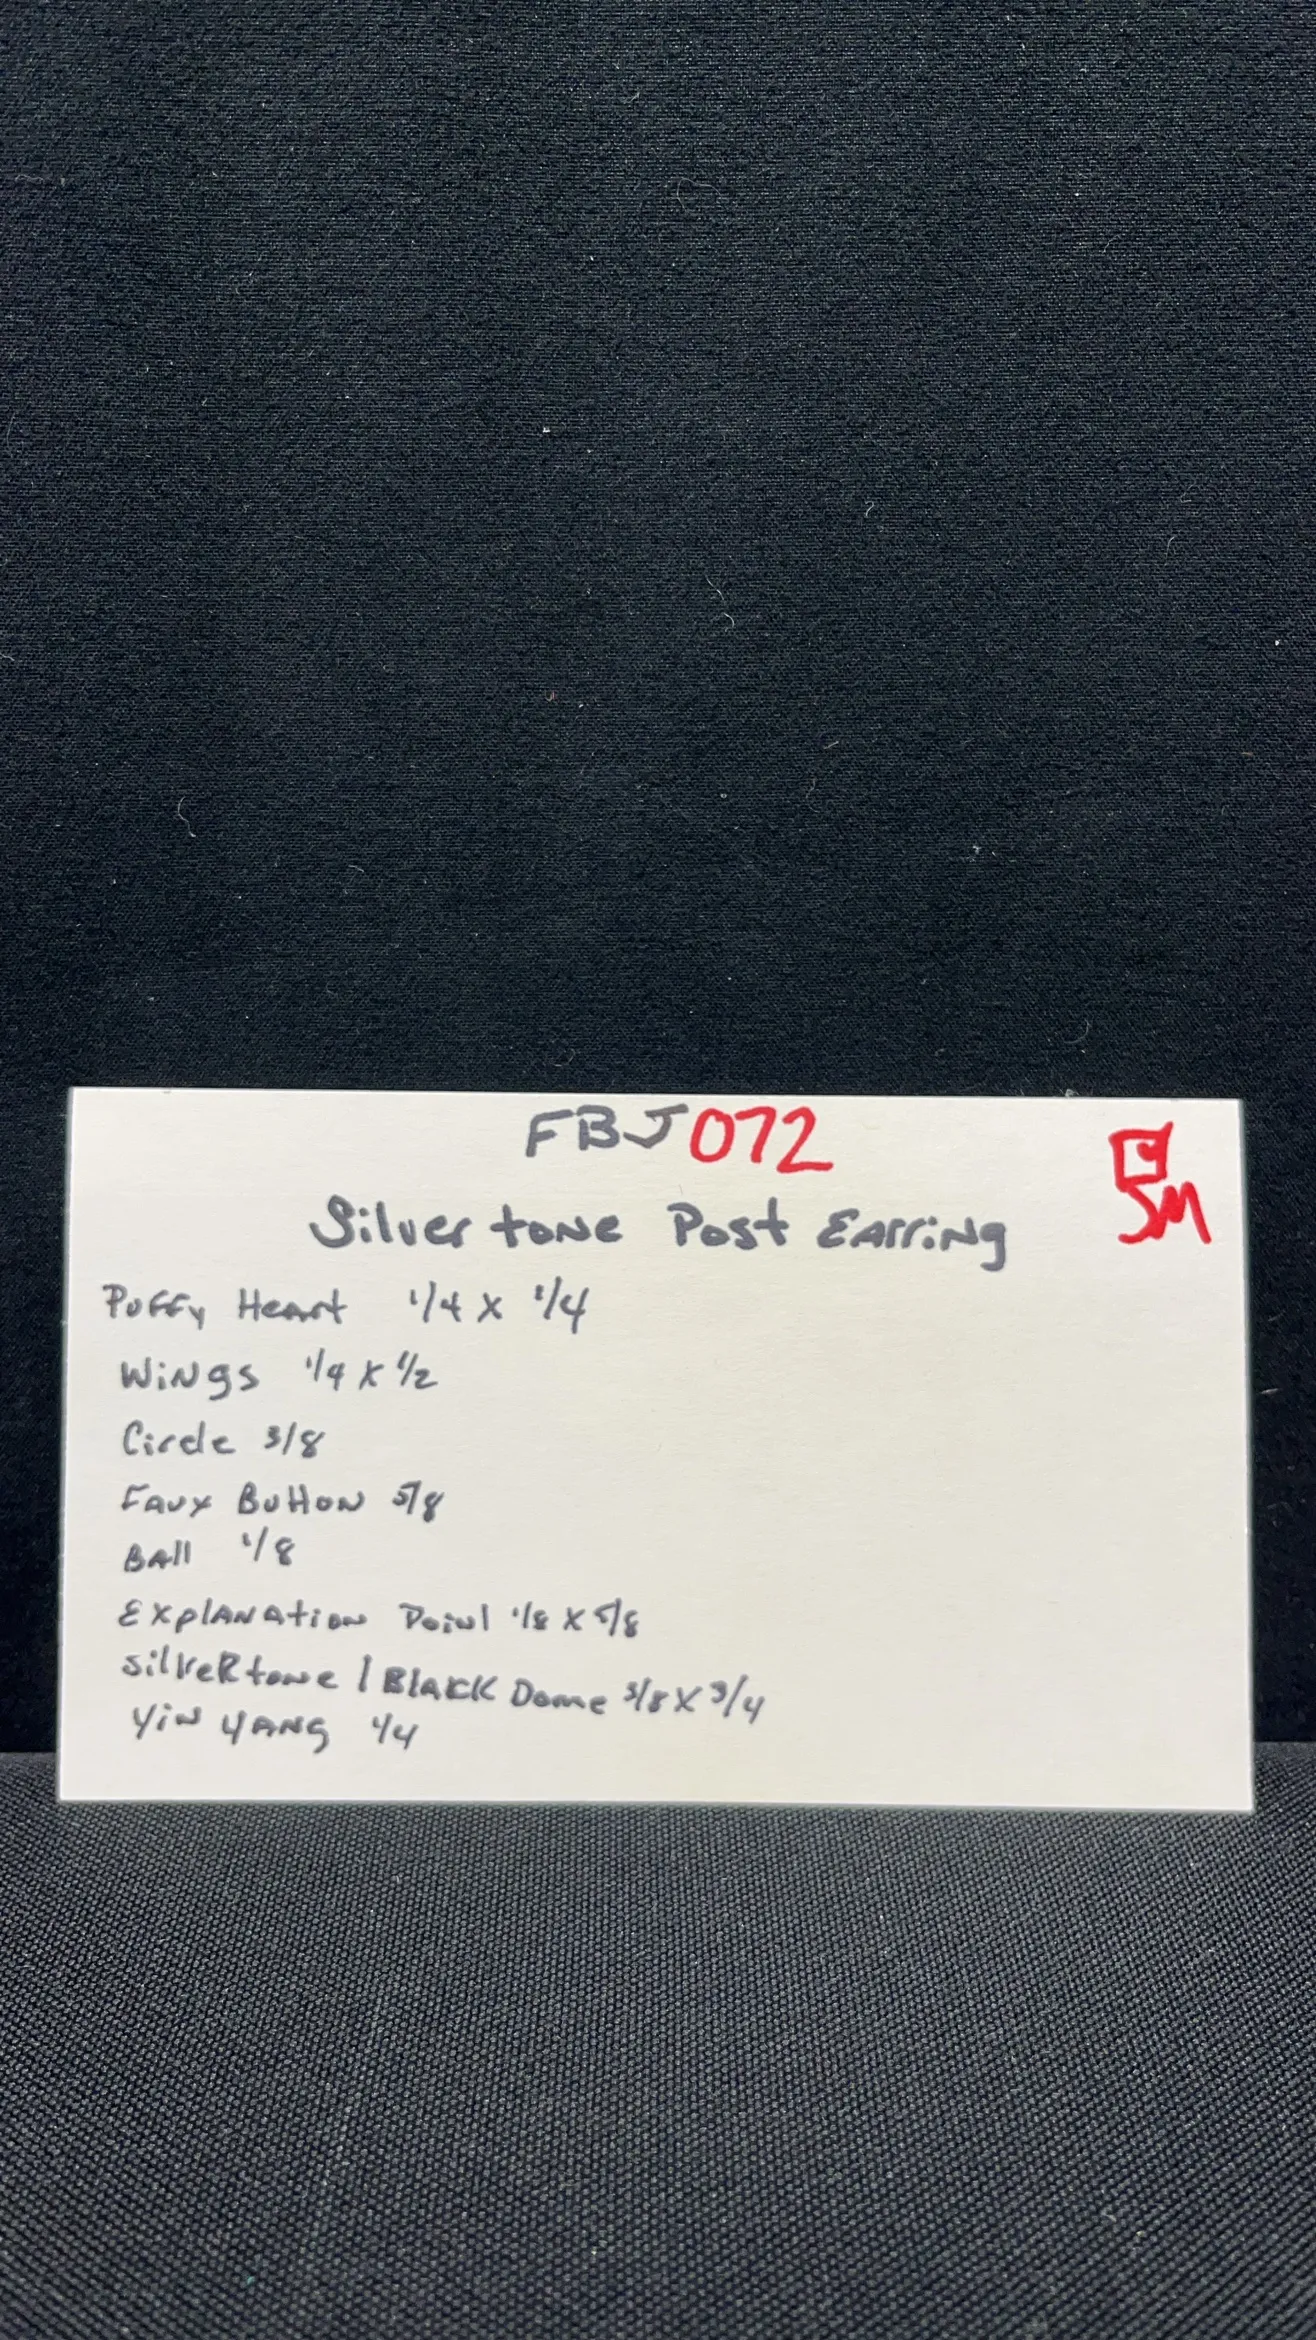 FBJ072
SM
Silvertone Post Earring
Puffy Heart 1/4 x 1/4
Wings 1/4 x 1/2
Circle 3/8
Faux Button 5/8
Ball 1/8
Explanation Point 1/8 x 5/8
Silvertone / Black Dome 3/8 x 3/4
Yin Yang 1/4